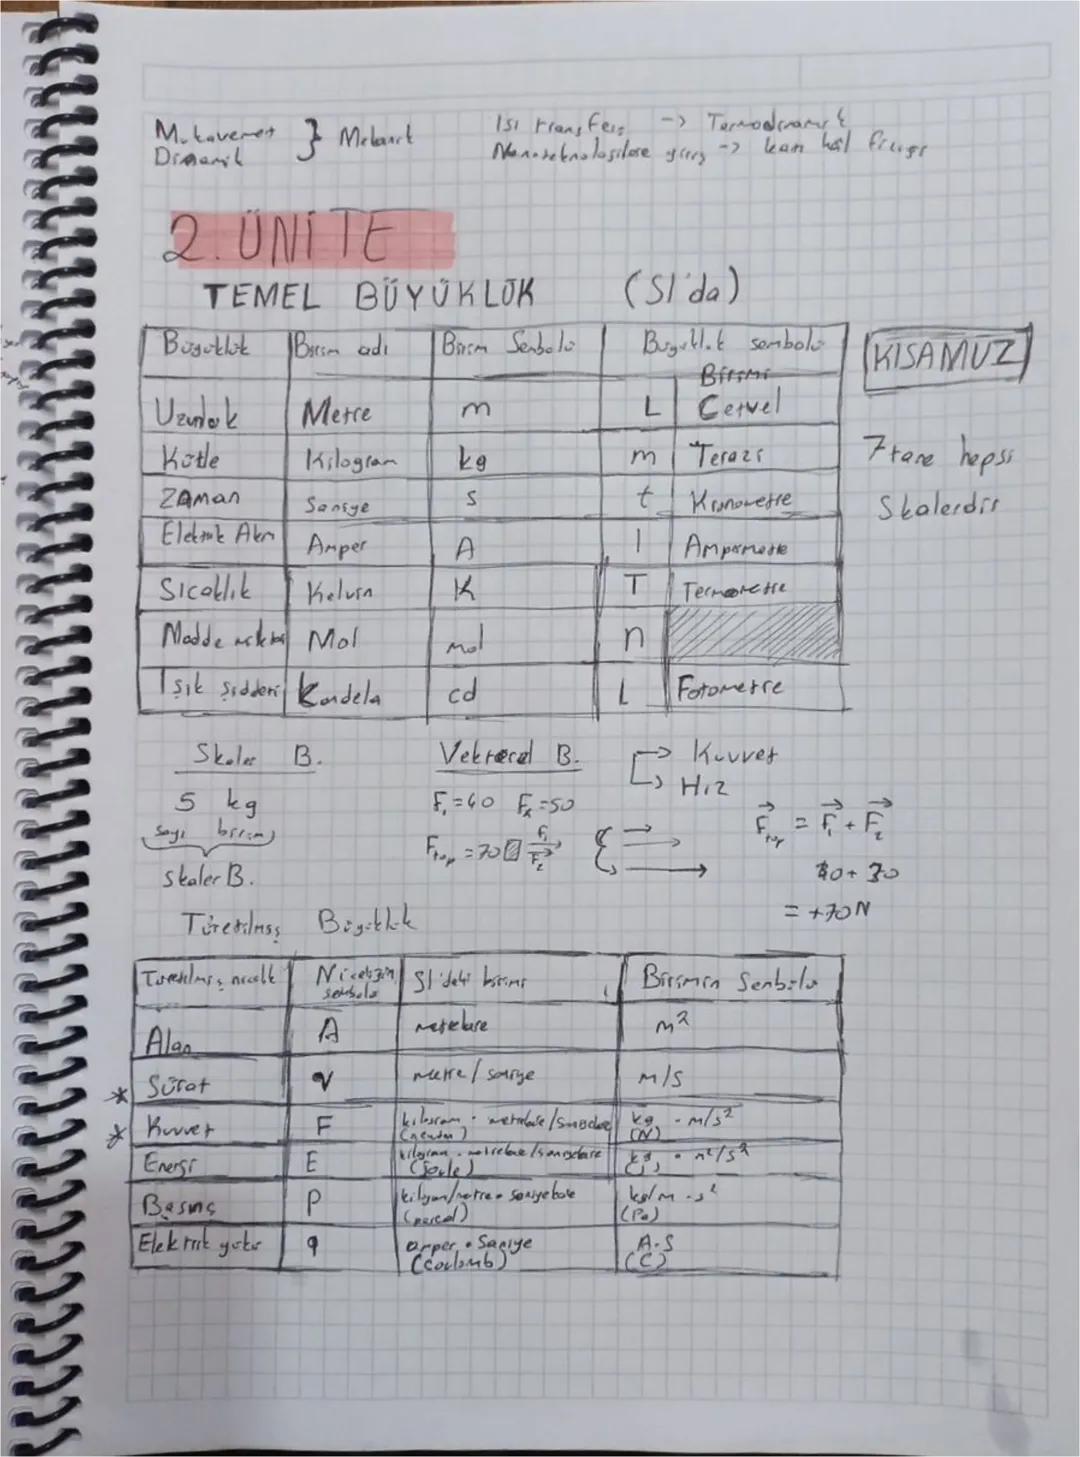 Mukavemet } Mekanik
Dinamik
Isı transferi -> Termodinamik
Nanoteknolojilere giriş -> katı hal fiziği
2. ÜNİTE
TEMEL BÜYÜKLÜK (SI'da)
Büyüklük Birim adı Birim Sembolü Büyüklük sembolü
Birimi
Uzunluk Metre m L Cetvel
Kütle Kilogram kg m Terazi
ZAMAN Saniye s t Kronometre
Elektrik Akım Amper A I Ampermetre
Sıcaklık Kelvin K T Termometre
Madde miktarı Mol mol n
Işık Şiddeti Kandela cd L Fotometre
KISAMUZ
7 tane hepsi
Skalerdir
Skaler B.
5 kg
Sayı birimi
skaler B.
Vektörel B. -> Kuvvet
-> Hız
F₁=40
Ftop =70 F₁ F₂
Ftop = F₁ + F₂
= +70N
Türetilmiş Büyüklük
Türetilmiş nicelik Niceliğin sembolü SI'deki birimi Birimin Sembolü
Alan A metrekare m²
Sürat v metre/saniye m/s
Kuvvet F kilogram · metrekare/saniyekare (newton) kg · m/s² (N)
Enerji E kilogram · metrekare/saniyekare (joule) kg · m²/s² (J)
Basınç P kilogram/metre · saniyekare (pascal) kg/m · s² (Pa)
Elektrik yükü q amper · Saniye (Coulomb) A·S (C)